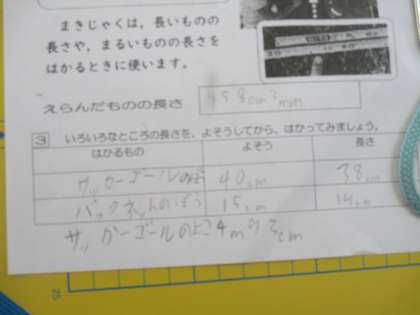 まきじゃくは，長いものの
長さや，まるいものの長さを
はかるときに使います。
えらんだものの長さ 458cm2mm
3 いろいろなところの長さを，よそうしてから，はかってみましょう。
はかるもの よそう 長さ
サッカーゴールのぼう 40cm 38cm
バックネットのぼう 15cm 14cm
サッカーゴールのよこ4m93cm